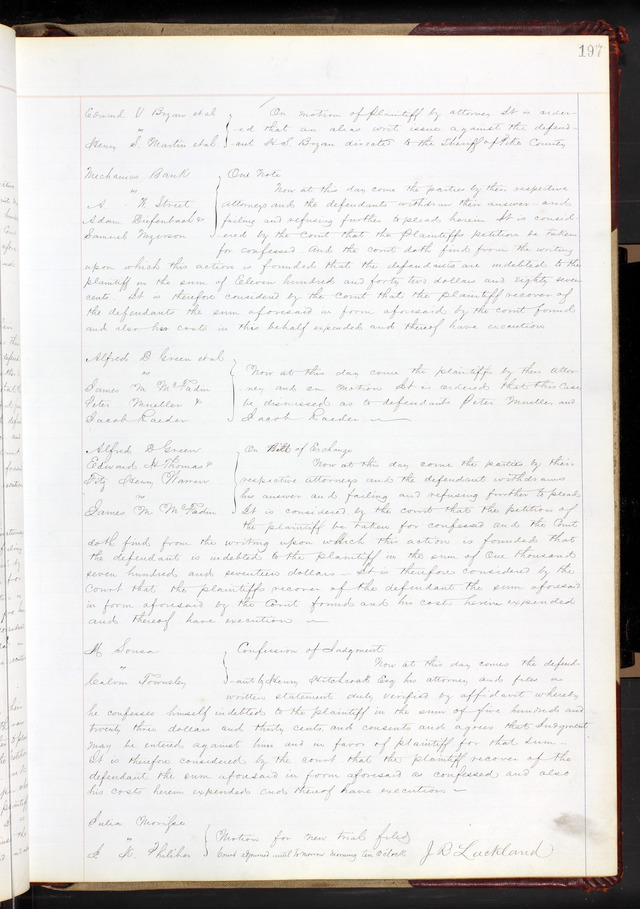 197
Edward V Bryan et al
vs
Henry S. Martin et al
On motion of Plaintiff by attorney It is order-
-ed that an alias writ issue against the defend-
-ant H S. Bryan directed to the Sheriff of Pike County
Mechanics Bank
vs
A W Street
Adam Diefenbach &
Samuel
One Note
Now at this day come the parties by their respective
attorneys and the defendants withdraw their answer and
failing and refusing further to plead herein It is consid-
ered by the Court that the Plaintiffs petition be taken
for confessed and the court doth find from the writing
upon which this action is founded that the defendants are indebted to the
plaintiff in the sum of Eleven hundred and forty two dollars and eighty seven
cents. It is therefore considered by the Court that the plaintiff recover of
the defendants the sum aforesaid in form aforesaid by the court found
and also his costs in this behalf expended and thereof have execution
Alfred D Green et al
vs
James M McFadin
Peter Mueller &
Jacob Raeder
Now at this day come the plaintiffs by their attor-
ney and on motion It is ordered that this case
be dismissed as to defendants Peter Mueller and
Jacob Raeder
Alfred D Green
Edward H Thomas &
Fitz Henry Warren
vs
James M McFadin
On Bill of Exchange
Now at this day come the parties by their
respective attorneys and the defendant withdraws
his answer and failing and refusing further to plead
It is considered by the court that the petition of
the plaintiff be taken for confessed and the Court
doth find from the writing upon which this action is founded that
the defendant is indebted to the plaintiff in the sum of One thousand
seven hundred and seventeen dollars – It is therefore considered by the
Court that the plaintiffs recover of the defendant the sum aforesaid
in form aforesaid by the Court found and his costs herein expended
and thereof have execution
M Sousa
vs
Calvin Townsley
Confession of Judgment
Now at this day comes the defend-
-ant by Henry Hitchcock Esq his attorney and files a
written statement duly verified by affidavit whereby
he confesses himself indebted to the plaintiff in the sum of five hundred and
twenty three dollars and thirty cents and consents and agrees that Judgment
may be entered against him and in favor of plaintiff for that sum –
It is therefore considered by the court that the plaintiff recover of the
defendant the sum aforesaid in form aforesaid as confessed and also
his costs herein expended and thereof have execution
Julia
vs
Motion for new trial filed
Court adjourned until tomorrow morning ten o'clock
J R Lackland